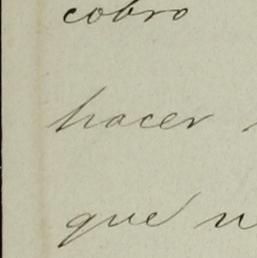 cobro
hacer
que